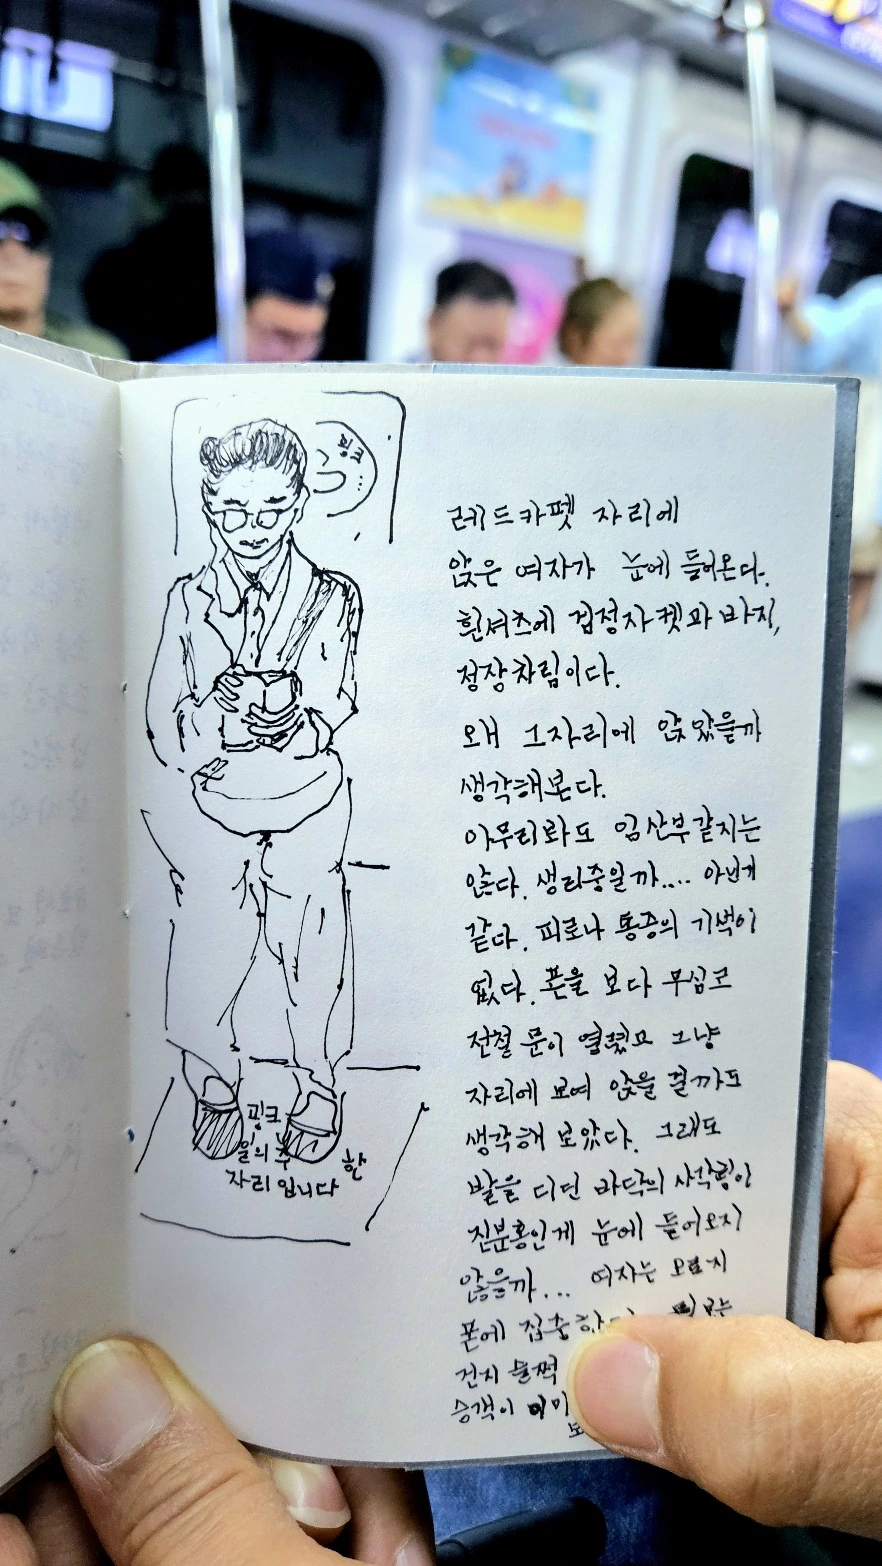 핑크
...
레드카펫 자리에
앉은 여자가 눈에 들어온다.
흰셔츠에 검정자켓과 바지,
정장차림이다.
왜 그자리에 앉았을까
생각해본다.
아무리봐도 임산부같지는
않다. 생리중일까.... 아닌거
같다. 피로나 통증의 기색이
없다. 폰을 보다 무심코
전철 문이 열렸고 그냥
자리에 보여 앉을 걸까도
생각해 보았다. 그래도
발을 디딘 바닥의 사각링이
진분홍인게 눈에 들어오지
않을까... 여자는 오로지
폰에 집중
건지 슬쩍
승객이
핑크
위한
자리입니다